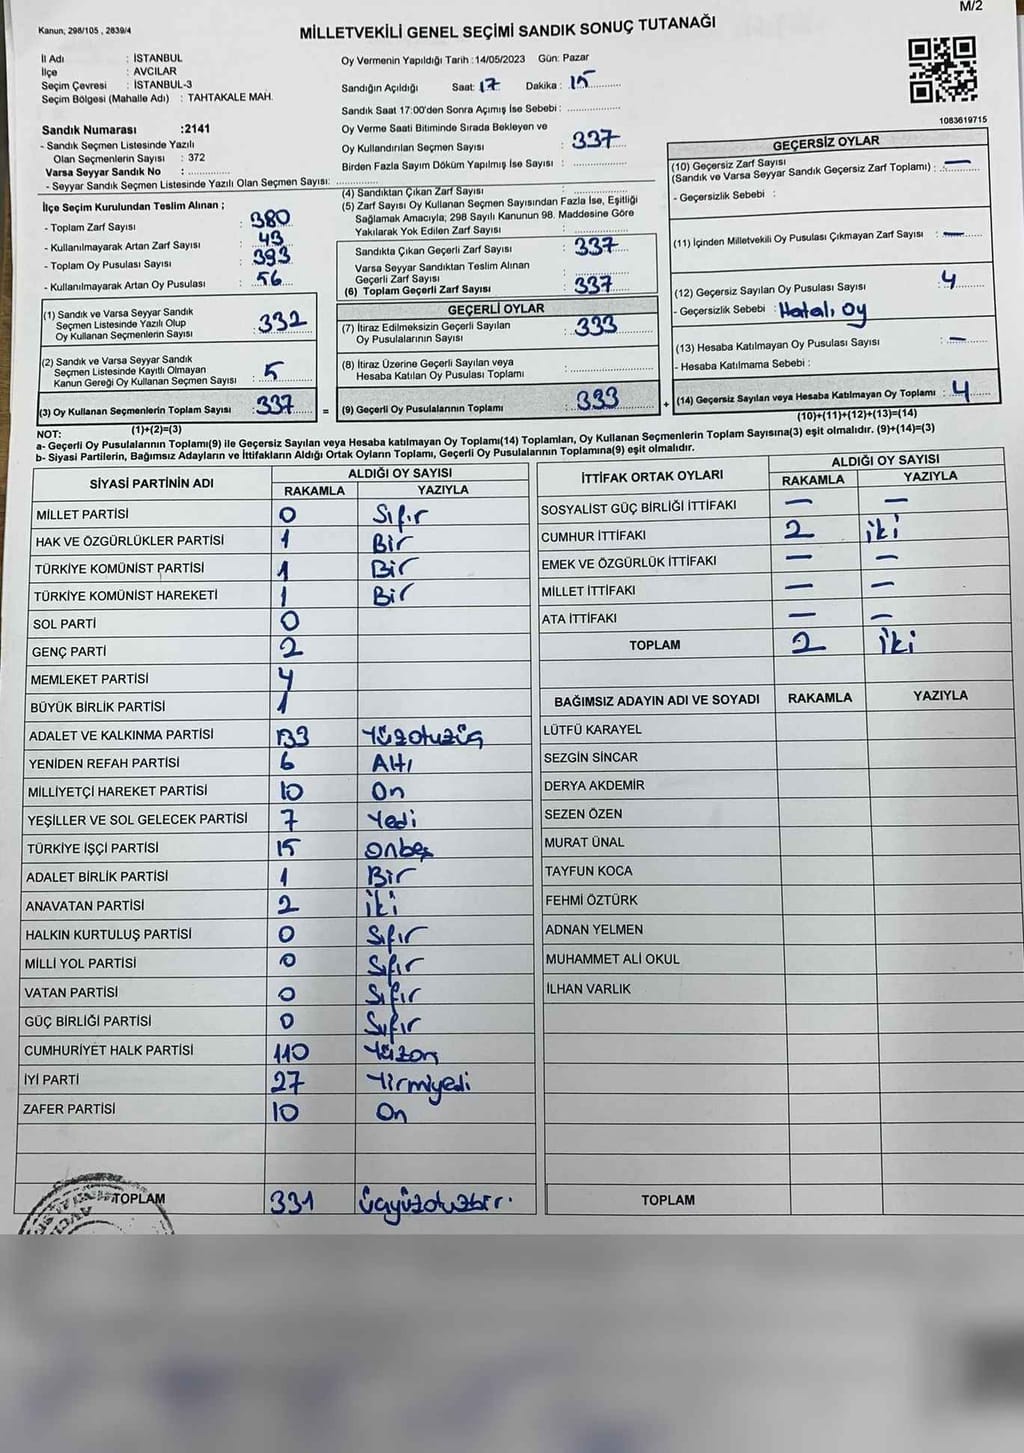 M/2
Kanun, 298/105 , 2839/4
MİLLETVEKİLİ GENEL SEÇİMİ SANDIK SONUÇ TUTANAĞI
İl Adı : İSTANBUL
İlçe : AVCILAR
Seçim Çevresi : İSTANBUL-3
Seçim Bölgesi (Mahalle Adı) : TAHTAKALE MAH.
Sandık Numarası :2141
- Sandık Seçmen Listesinde Yazılı
Olan Seçmenlerin Sayısı : 372
Varsa Seyyar Sandık No :
- Seyyar Sandık Seçmen Listesinde Yazılı Olan Seçmen Sayısı:
Oy Vermenin Yapıldığı Tarih : 14/05/2023 Gün: Pazar
Sandığın Açıldığı Saat: 17 Dakika : 15
Sandık Saat 17:00'den Sonra Açımış İse Sebebi :
Oy Verme Saati Bitiminde Sırada Bekleyen ve
Oy Kullandırılan Seçmen Sayısı : 337
Birden Fazla Sayım Döküm Yapılmış İse Sayısı :
1083619715
İlçe Seçim Kurulundan Teslim Alınan ;
- Toplam Zarf Sayısı : 380
- Kullanılmayarak Artan Zarf Sayısı : 43
- Toplam Oy Pusulası Sayısı : 393
- Kullanılmayarak Artan Oy Pusulası : 56
(1) Sandık ve Varsa Seyyar Sandık
Seçmen Listesinde Yazılı Olup
Oy Kullanan Seçmenlerin Sayısı : 332
(2) Sandık ve Varsa Seyyar Sandık
Seçmen Listesinde Kayıtlı Olmayan
Kanun Gereği Oy Kullanan Seçmen Sayısı : 5
(3) Oy Kullanan Seçmenlerin Toplam Sayısı : 337 =
(1)+(2)=(3)
(4) Sandıktan Çıkan Zarf Sayısı :
(5) Zarf Sayısı Oy Kullanan Seçmen Sayısından Fazla İse, Eşitliği
Sağlamak Amacıyla; 298 Sayılı Kanunun 98. Maddesine Göre
Yakılarak Yok Edilen Zarf Sayısı :
Sandıkta Çıkan Geçerli Zarf Sayısı : 337
Varsa Seyyar Sandıktan Teslim Alınan
Geçerli Zarf Sayısı :
(6) Toplam Geçerli Zarf Sayısı : 337
GEÇERLİ OYLAR
(7) İtiraz Edilmeksizin Geçerli Sayılan
Oy Pusulalarının Sayısı : 333
(8) İtiraz Üzerine Geçerli Sayılan veya
Hesaba Katılan Oy Pusulası Toplamı :
(9) Geçerli Oy Pusulalarının Toplamı : 333 +
GEÇERSİZ OYLAR
(10) Geçersiz Zarf Sayısı
(Sandık ve Varsa Seyyar Sandık Geçersiz Zarf Toplamı) : —
- Geçersizlik Sebebi :
(11) İçinden Milletvekili Oy Pusulası Çıkmayan Zarf Sayısı : —
(12) Geçersiz Sayılan Oy Pusulası Sayısı : 4
- Geçersizlik Sebebi : Hatalı oy
(13) Hesaba Katılmayan Oy Pusulası Sayısı : —
- Hesaba Katılmama Sebebi :
(14) Geçersiz Sayılan veya Hesaba Katılmayan Oy Toplamı : 4
(10)+(11)+(12)+(13)=(14)
NOT:
a- Geçerli Oy Pusulalarının Toplamı(9) ile Geçersiz Sayılan veya Hesaba katılmayan Oy Toplamı(14) Toplamları, Oy Kullanan Seçmenlerin Toplam Sayısına(3) eşit olmalıdır. (9)+(14)=(3)
b- Siyasi Partilerin, Bağımsız Adayların ve İttifakların Aldığı Oyların Toplamı, Geçerli Oy Pusulalarının Toplamına(9) eşit olmalıdır.
SİYASİ PARTİNİN ADI ALDIĞI OY SAYISI
RAKAMLA YAZIYLA
MİLLET PARTİSİ 0 Sıfır
HAK VE ÖZGÜRLÜKLER PARTİSİ 1 Bir
TÜRKİYE KOMÜNİST PARTİSİ 1 Bir
TÜRKİYE KOMÜNİST HAREKETİ 1 Bir
SOL PARTİ 0
GENÇ PARTİ 2
MEMLEKET PARTİSİ 4
BÜYÜK BİRLİK PARTİSİ 1
ADALET VE KALKINMA PARTİSİ 133 Yüzotuzüç
YENİDEN REFAH PARTİSİ 6 Altı
MİLLİYETÇİ HAREKET PARTİSİ 10 On
YEŞİLLER VE SOL GELECEK PARTİSİ 7 Yedi
TÜRKİYE İŞÇİ PARTİSİ 15 Onbeş
ADALET BİRLİK PARTİSİ 1 Bir
ANAVATAN PARTİSİ 2 İki
HALKIN KURTULUŞ PARTİSİ 0 Sıfır
MİLLİ YOL PARTİSİ 0 Sıfır
VATAN PARTİSİ 0 Sıfır
GÜÇ BİRLİĞİ PARTİSİ 0 Sıfır
CUMHURİYET HALK PARTİSİ 110 Yüzon
İYİ PARTİ 27 Yirmiyedi
ZAFER PARTİSİ 10 On
TOPLAM 331 üçyüzotuzbir.
İTTİFAK ORTAK OYLARI ALDIĞI OY SAYISI
RAKAMLA YAZIYLA
SOSYALİST GÜÇ BİRLİĞİ İTTİFAKI — —
CUMHUR İTTİFAKI 2 iki
EMEK VE ÖZGÜRLÜK İTTİFAKI — —
MİLLET İTTİFAKI — —
ATA İTTİFAKI — —
TOPLAM 2 iki
BAĞIMSIZ ADAYIN ADI VE SOYADI RAKAMLA YAZIYLA
LÜTFÜ KARAYEL
SEZGİN SİNCAR
DERYA AKDEMİR
SEZEN ÖZEN
MURAT ÜNAL
TAYFUN KOCA
FEHMİ ÖZTÜRK
ADNAN YELMEN
MUHAMMET ALİ OKUL
İLHAN VARLIK
TOPLAM